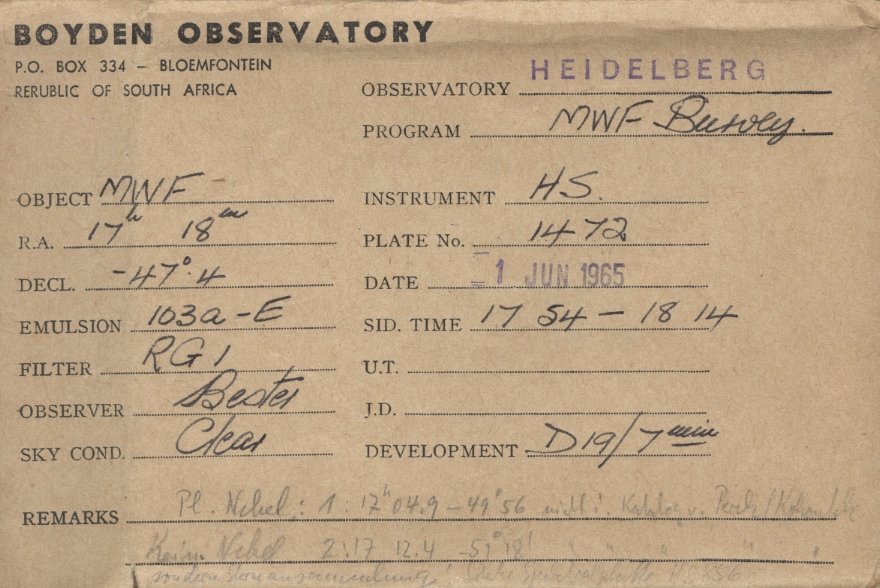 BOYDEN OBSERVATORY
P.O. BOX 334 – BLOEMFONTEIN
RERUBLIC OF SOUTH AFRICA
OBSERVATORY HEIDELBERG
PROGRAM MWF Survey.
OBJECT MWF
R.A. 17h 18m
DECL. -47°.4
EMULSION 103a-E
FILTER RG1
OBSERVER Bester
SKY COND. Clear
INSTRUMENT HS.
PLATE No. 1472
DATE 1 JUN 1965
SID. TIME 17 54 – 18 14
U.T.
J.D.
DEVELOPMENT D19/7 min
REMARKS Pl. Nebel: 1: 17h 04.9 – 49° 56 nicht i. Katalog v. Perek/Kohoutek
Kein Nebel 2: 17 12.4 -51° 18' " " " " "
sondern Sternansammlung!